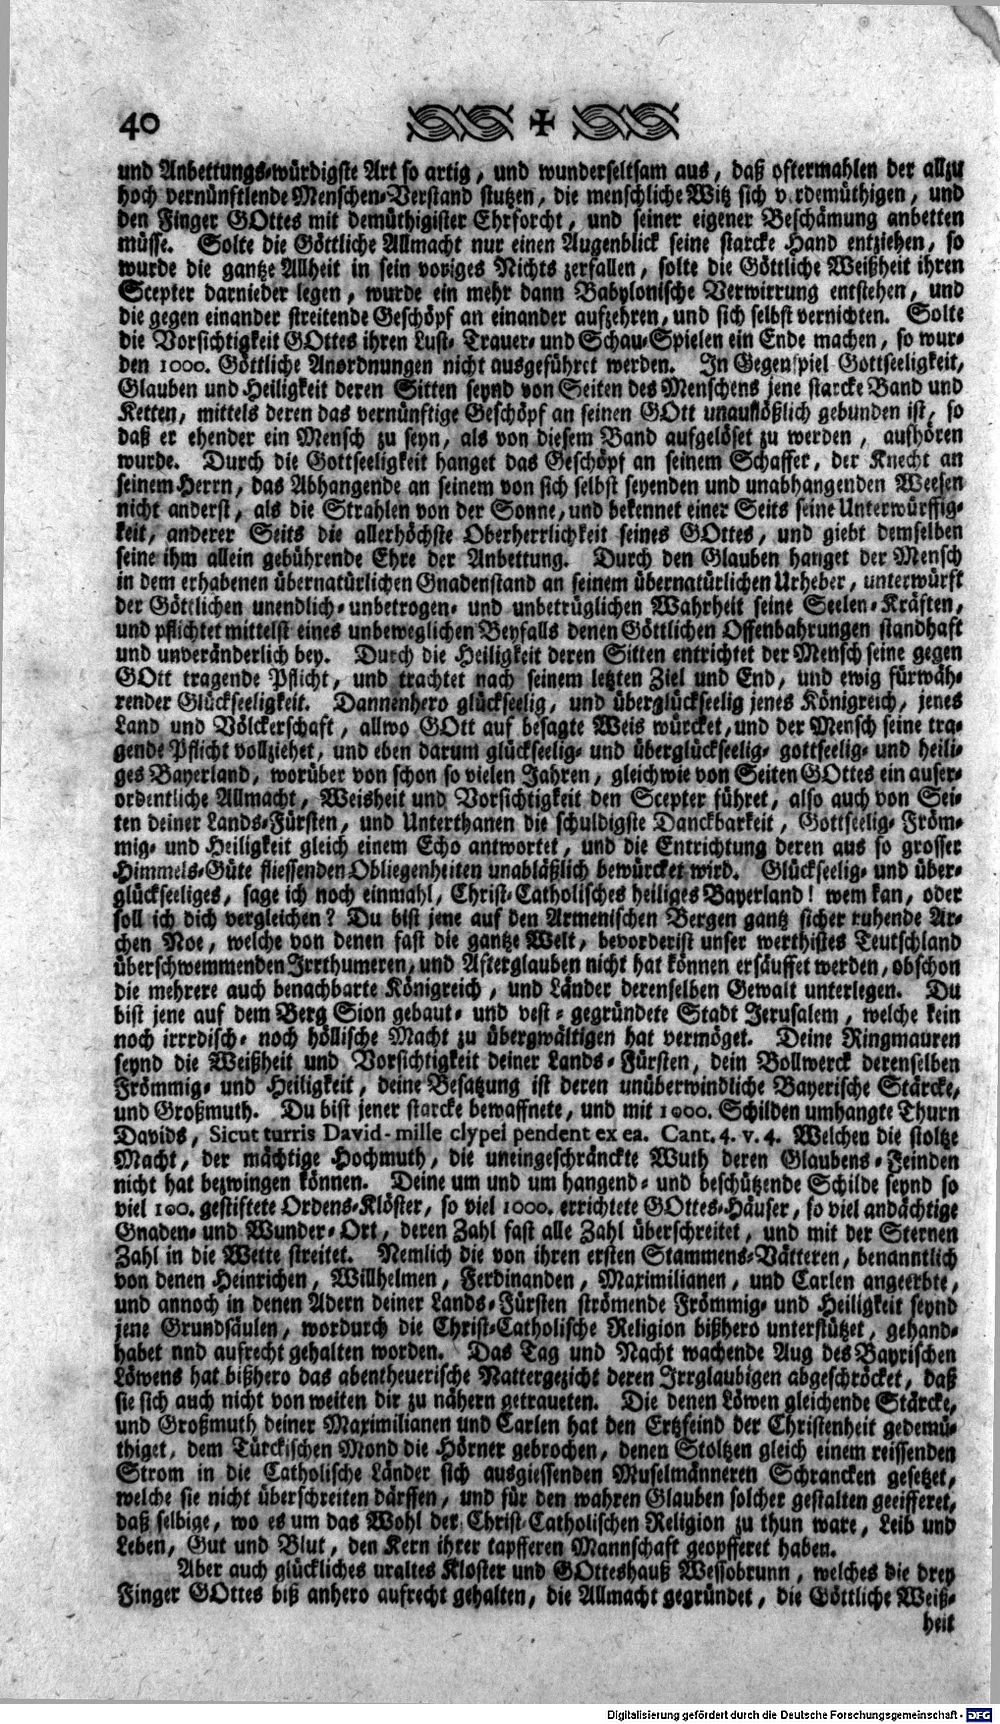 40
und Anbettungs-würdigste Art so artig, und wunderseltsam aus, daß oftermahlen der allzu
hoch vernünftlende Menschen-Verstand stutzen, die menschliche Witz sich v rdemüthigen, und
den Finger GOttes mit demüthigister Ehrforcht, und seiner eigener Beschämung anbetten
müsse. Solte die Göttliche Allmacht nur einen Augenblick seine starcke Hand entziehen, so
wurde die gantze Allheit in sein voriges Nichts zerfallen, solte die Göttliche Weißheit ihren
Scepter darnieder legen, wurde ein mehr dann Babylonische Verwirrung entstehen, und
die gegen einander streitende Geschöpf an einander aufzehren, und sich selbst vernichten. Solte
die Vorsichtigkeit GOttes ihren Lust- Trauer- und Schau-Spielen ein Ende machen, so wur-
den 1000. Göttliche Anordnungen nicht ausgeführet werden. In Gegenspiel Gottseeligkeit,
Glauben und Heiligkeit deren Sitten seynd von Seiten des Menschens jene starcke Band und
Ketten, mittels deren das vernünftige Geschöpf an seinen GOtt unauflößlich gebunden ist, so
daß er ehender ein Mensch zu seyn, als von diesem Band aufgelöset zu werden, aufhören
wurde. Durch die Gottseeligkeit hanget das Geschöpf an seinem Schaffer, der Knecht an
seinem Herrn, das Abhangende an seinem von sich selbst seyenden und unabhangenden Weesen
nicht anderst, als die Strahlen von der Sonne, und bekennet einer Seits seine Unterwürffig-
keit, anderer Seits die allerhöchste Oberherrlichkeit seines GOttes, und giebt demselben
seine ihm allein gebührende Ehre der Anbettung. Durch den Glauben hanget der Mensch
in dem erhabenen übernatürlichen Gnadenstand an seinem übernatürlichen Urheber, unterwürft
der Göttlichen unendlich- unbetrogen- und unbetrüglichen Wahrheit seine Seelen-Kräften,
und pflichtet mittelst eines unbeweglichen Beyfalls denen Göttlichen Offenbahrungen standhaft
und unveränderlich bey. Durch die Heiligkeit deren Sitten entrichtet der Mensch seine gegen
GOtt tragende Pflicht, und trachtet nach seinem letzten Ziel und End, und ewig fürwäh-
render Glückseeligkeit. Dannenhero glückseelig, und überglückseelig jenes Königreich, jenes
Land und Völckerschaft, allwo GOtt auf besagte Weis würcket, und der Mensch seine tra-
gende Pflicht vollziehet, und eben darum glückseelig- und überglückseelig- gottseelig- und heili-
ges Bayerland, worüber von schon so vielen Jahren, gleichwie von Seiten GOttes ein auser-
ordentliche Allmacht, Weisheit und Vorsichtigkeit den Scepter führet, also auch von Sei-
ten deiner Lands-Fürsten, und Unterthanen die schuldigste Danckbarkeit, Gottseelig- Fröm-
mig- und Heiligkeit gleich einem Echo antwortet, und die Entrichtung deren aus so grosser
Himmels-Güte fliessenden Obliegenheiten unabläßlich bewürcket wird. Glückseelig- und über-
glückseeliges, sage ich noch einmahl, Christ-Catholisches heiliges Bayerland! wem kan, oder
soll ich dich vergleichen? Du bist jene auf den Armenischen Bergen gantz sicher ruhende Ar-
chen Noe, welche von denen fast die gantze Welt, bevorderist unser werthistes Teutschland
überschwemmenden Irrthumeren, und Afterglauben nicht hat können ersäuffet werden, obschon
die mehrere auch benachbarte Königreich, und Länder derenselben Gewalt unterlegen. Du
bist jene auf dem Berg Sion gebaut- und vest- gegründete Stadt Jerusalem, welche kein
noch irrdisch- noch höllische Macht zu übergwältigen hat vermöget. Deine Ringmauren
seynd die Weißheit und Vorsichtigkeit deiner Lands-Fürsten, dein Bollwerck derenselben
Frömmig- und Heiligkeit, deine Besatzung ist deren unüberwindliche Bayerische Stärcke,
und Großmuth. Du bist jener starcke bewaffnete, und mit 1000. Schilden umhangte Thurn
Davids, Sicut turris David - mille clypei pendent ex ea. Cant. 4. v. 4. Welchen die stoltze
Macht, der mächtige Hochmuth, die uneingeschränckte Wuth deren Glaubens-Feinden
nicht hat bezwingen können. Deine um und um hangend- und beschützende Schilde seynd so
viel 100. gestiftete Ordens-Klöster, so viel 1000. errichtete GOttes-Häuser, so viel andächtige
Gnaden- und Wunder-Ort, deren Zahl fast alle Zahl überschreitet, und mit der Sternen
Zahl in die Wette streitet. Nemlich die von ihren ersten Stammens-Vätteren, benanntlich
von denen Heinrichen, Willhelmen, Ferdinanden, Maximilianen, und Carlen angeerbte,
und annoch in denen Adern deiner Lands-Fürsten strömende Frömmig- und Heiligkeit seynd
jene Grundsäulen, wordurch die Christ-Catholische Religion bißhero unterstützet, gehand-
habet nnd aufrecht gehalten worden. Das Tag und Nacht wachende Aug des Bayrischen
Löwens hat bißhero das abentheuerische Nattergezicht deren Irrglaubigen abgeschröcket, daß
sie sich auch nicht von weiten dir zu nähern getraueten. Die denen Löwen gleichende Stärcke,
und Großmuth deiner Maximilianen und Carlen hat den Ertzfeind der Christenheit gedemü-
thiget, dem Türckischen Mond die Hörner gebrochen, denen Stoltzen gleich einem reissenden
Strom in die Catholische Länder sich ausgiessenden Muselmänneren Schrancken gesetzet,
welche sie nicht überschreiten därffen, und für den wahren Glauben solcher gestalten geeifferet,
daß selbige, wo es um das Wohl der Christ-Catholischen Religion zu thun ware, Leib und
Leben, Gut und Blut, den Kern ihrer tapfferen Mannschaft geopfferet haben.
Aber auch glückliches uraltes Kloster und GOtteshauß Wessobrunn, welches die drey
Finger GOttes biß anhero aufrecht gehalten, die Allmacht gegründet, die Göttliche Weiß-
heit
Digitalisierung gefördert durch die Deutsche Forschungsgemeinschaft - DFG